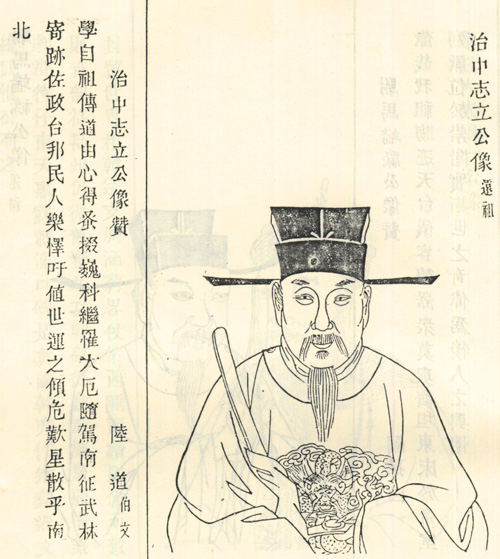 治中志立公像 遠祖
治中志立公像贊 陸道伯文
學自祖傳道由心得蚤掇巍科繼罹大厄隨駕南征武林
寄跡佐政台邦民人樂懌吁值世運之傾危歎星散乎南
北